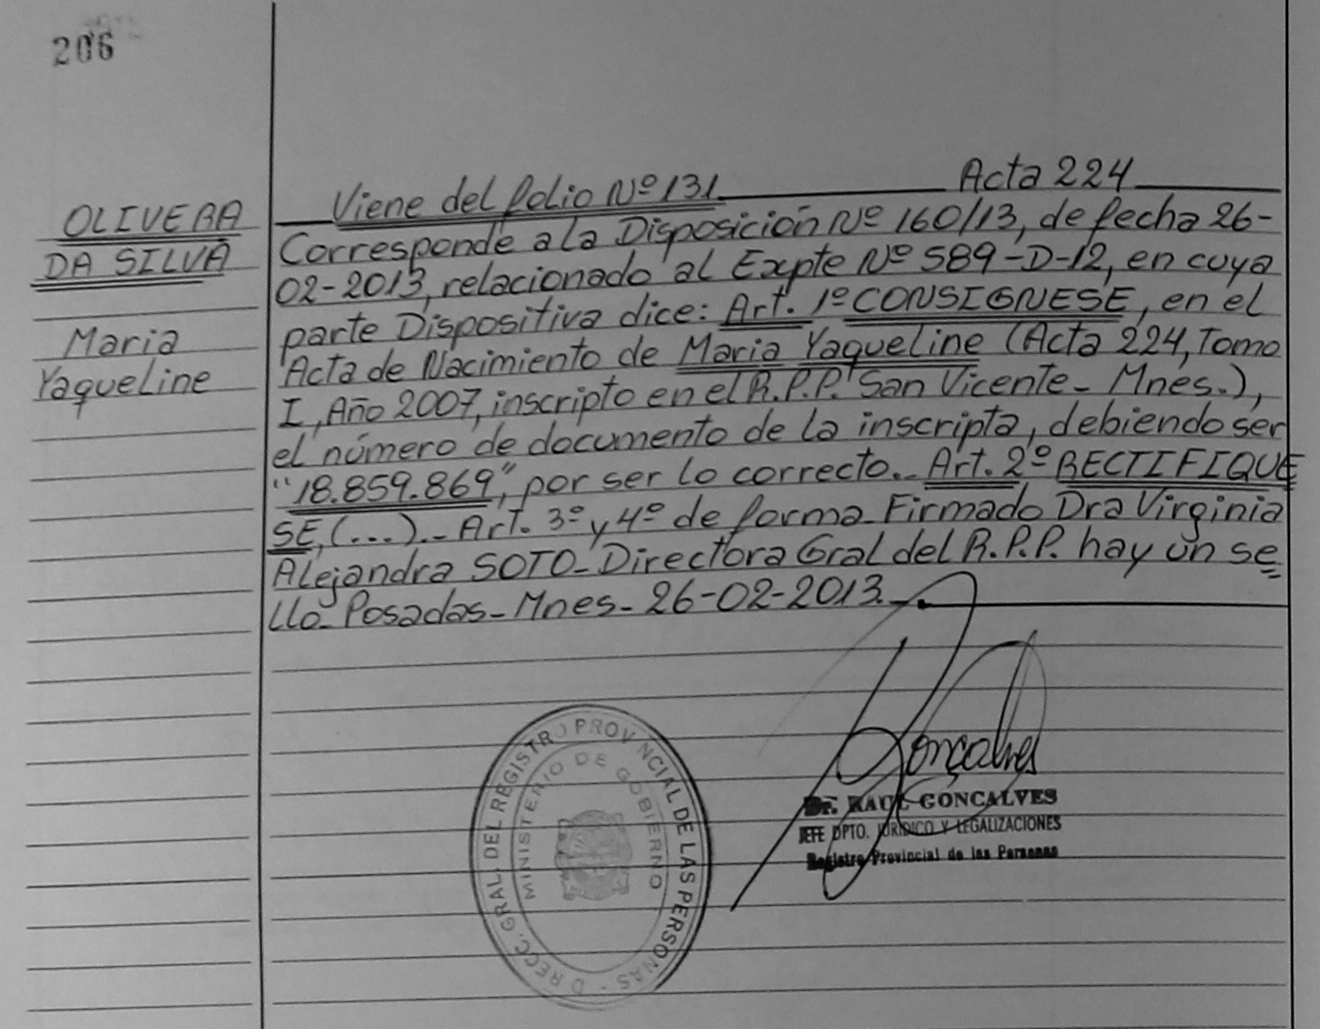 206
Viene del folio Nº 131 Acta 224
OLIVERA
DA SILVA
Maria
Yaqueline
Corresponde a la Disposición Nº 160/13, de fecha 26-
02-2013, relacionado al Expte Nº 589-D-12, en cuya
parte Dispositiva dice: Art. 1º CONSIGNESE, en el
Acta de Nacimiento de Maria Yaqueline (Acta 224, Tomo
I, Año 2007, inscripto en el R.P.P. San Vicente- Mnes.),
el número de documento de la inscripta, debiendo ser
"18.859.869", por ser lo correcto.- Art. 2º RECTIFIQUE
SE, (...).- Art. 3º y 4º de forma- Firmado Dra Virginia
Alejandra SOTO- Directora Gral del R.P.P. hay un se
llo- Posadas- Mnes- 26-02-2013.-
DIRECC. GRAL. DEL REGISTRO PROVINCIAL DE LAS PERSONAS -
MINISTERIO DE GOBIERNO
Goncalves
Dr. RAUL GONCALVES
JEFE DPTO. JURIDICO Y LEGALIZACIONES
Registro Provincial de las Personas